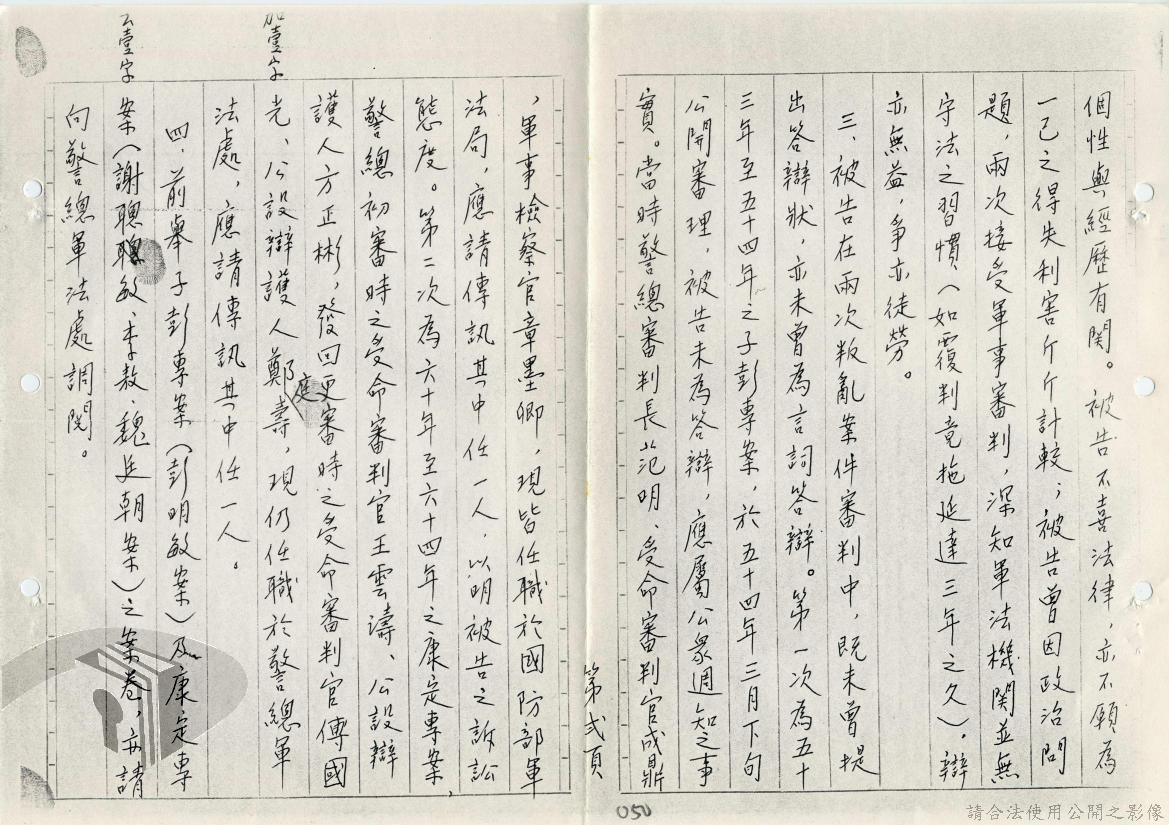 個性與經歷有関。被告不喜法律，亦不願為
一己之得失利害斤斤計較；被告曾因政治問
題，兩次接受軍事審判，深知軍法機関並無
守法之習慣（如覆判竟拖延達三年之久）。辯
亦無益，爭亦徒勞。
三、被告在兩次叛亂案件審判中，既未曾提
出答辯狀，亦未曾為言詞答辯。第一次為五十
三年至五十四年之子彭專案，於五十四年三月下旬
公開審理，被告未為答辯，應屬公衆週知之事
實。當時警總審判長范明、受命審判官成鼎
第弍頁
，軍事檢察官章墨卿，現皆任職於國防部軍
法局，應請傳訊其中任一人，以明被告之訴訟
態度。第二次為六十年至六十四年之康定專案，
警總初審時之受命審判官王雲濤、公設辯
護人方正彬，發回更審時之受命審判官傅國
光、公設辯護人鄭庭壽，現仍任職於警總軍
加壹字
法處，應請傳訊其中任一人。
四、前舉子彭專案（彭明敏案）及康定專
案（謝聰敏、李敖、魏廷朝案）之案卷，亦請
壹字
向警總軍法處調閱。
050
請合法使用公開之影像